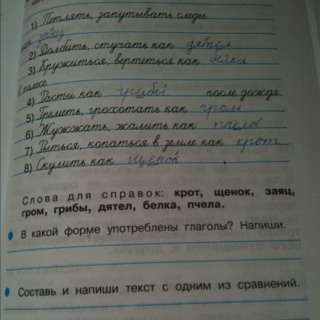 1) Петлять, запутывать следы
как заяц
2) Долбить, стучать как дятел
3) Кружиться, вертеться как белка
в колесе
4) Расти как грибы после дождя
5) Греметь, грохотать как гром
6) Жужжать, жалить как пчела
7) Рыться, копаться в земле как крот
8) Скулить как щенок.
Слова для справок: крот, щенок, заяц,
гром, грибы, дятел, белка, пчела.
В какой форме употреблены глаголы? Напиши.
Составь и напиши текст с одним из сравнений.